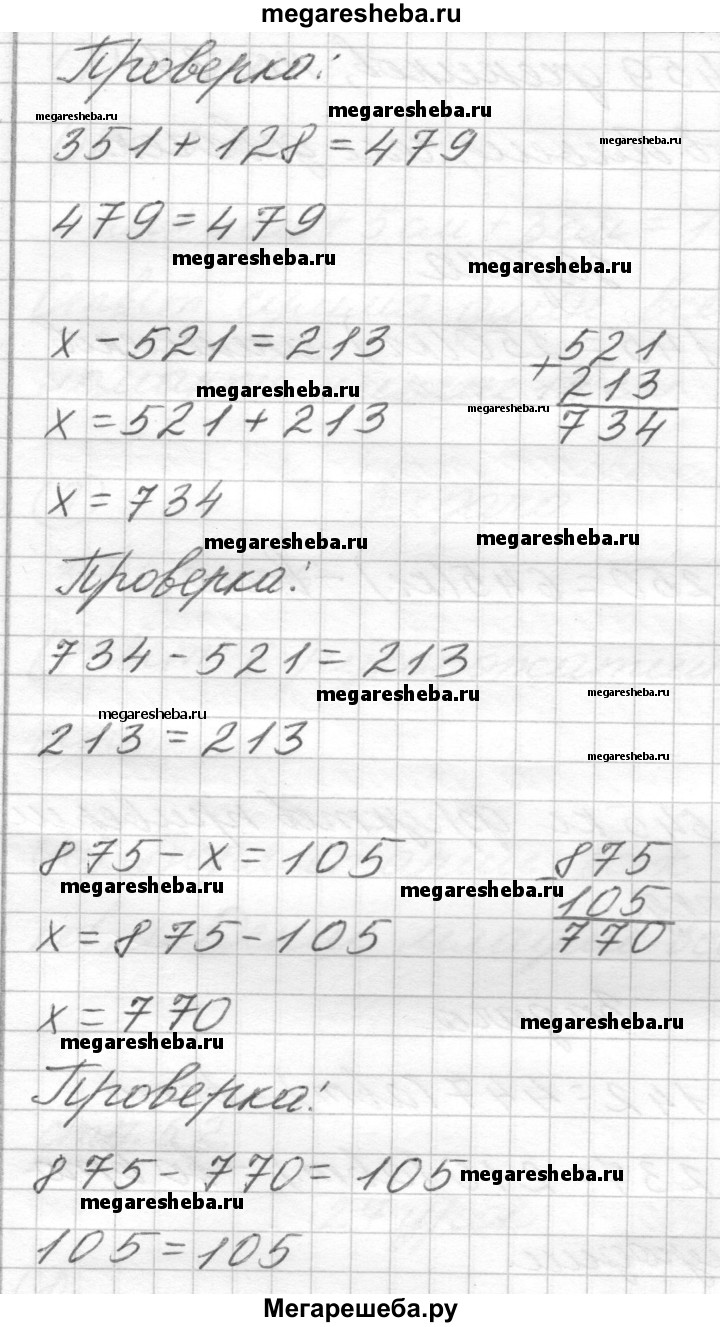 megaresheba.ru
Проверка:
megaresheba.ru
megaresheba.ru
megaresheba.ru
351 + 128 = 479
479 = 479
megaresheba.ru
megaresheba.ru
x - 521 = 213
+ 521
megaresheba.ru
213
megaresheba.ru
x = 521 + 213
734
x = 734
megaresheba.ru
megaresheba.ru
Проверка:
734 - 521 = 213
megaresheba.ru
megaresheba.ru
megaresheba.ru
213 = 213
megaresheba.ru
875 - x = 105
- 875
megaresheba.ru
megaresheba.ru
105
x = 875 - 105
770
x = 770
megaresheba.ru
megaresheba.ru
Проверка:
875 - 770 = 105
megaresheba.ru
megaresheba.ru
105 = 105
Мегарешеба.ру